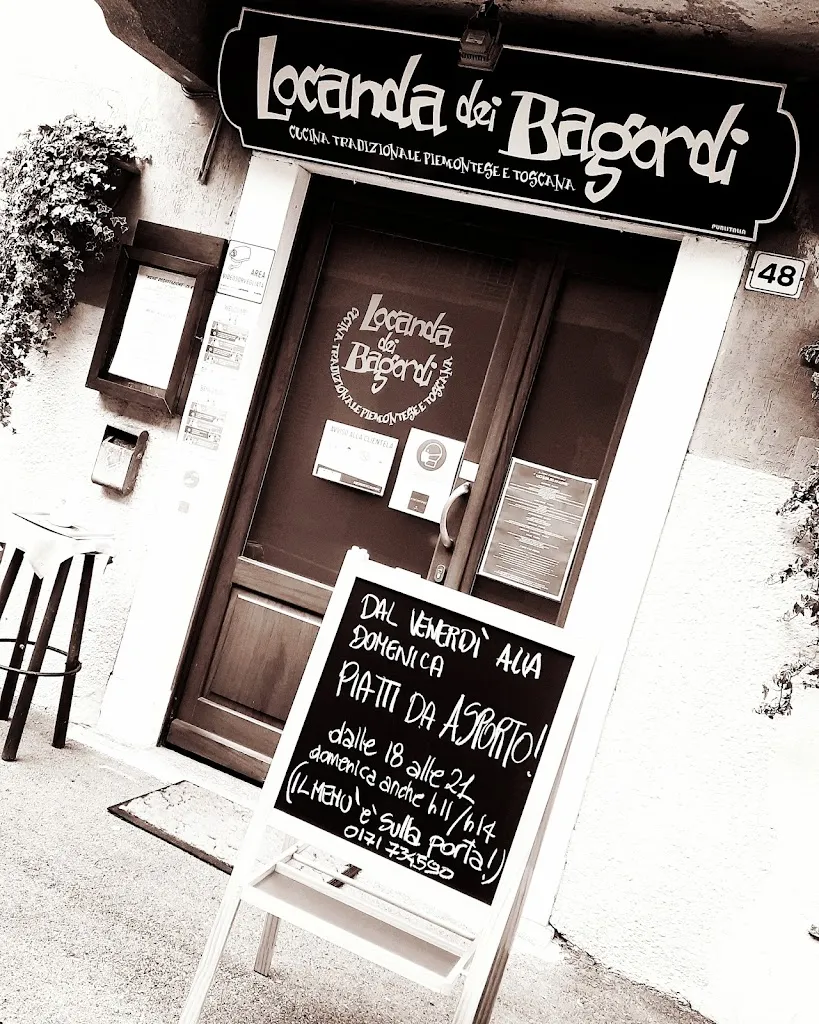 Locanda dei Bagordi
CUCINA TRADIZIONALE PIEMONTESE E TOSCANA
PUBLITALIA
48
AREA
VIDEOSORVEGLIATA
Locanda
dei
Bagordi
CUCINA TRADIZIONALE PIEMONTESE E TOSCANA
AVVISO ALLA CLIENTELA
DAL VENERDÌ ALLA
DOMENICA
PIATTI DA ASPORTO!
dalle 18 alle 21
domenica anche h11/h14
(IL MENÙ è sulla porta!)
0171 734590